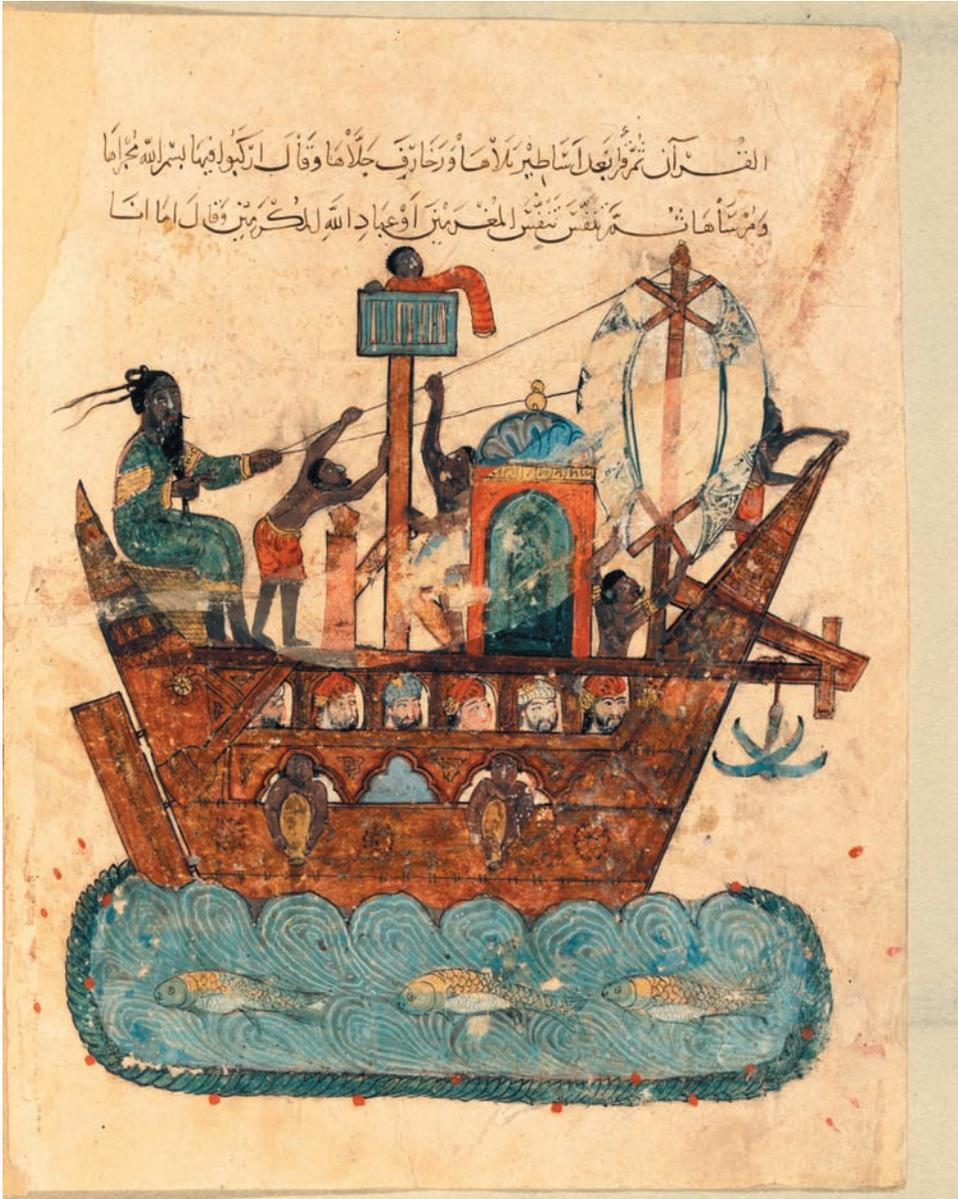 القرآن ثم قرأ بعد أساطير تلاها وزخارف جلاها وقال اركبوا فيها بسم الله مجراها
ومرساها ثم تنفس تنفس المغرمين أو عباد الله المكرمين وقال اما انا